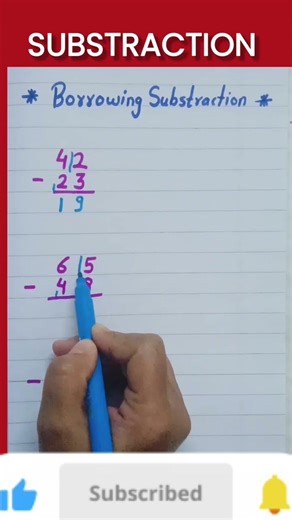 SUBSTRACTION
* Borrowing Substraction *
4 12
- 12 3
1 9
6 15
- 14
-
Subscribed